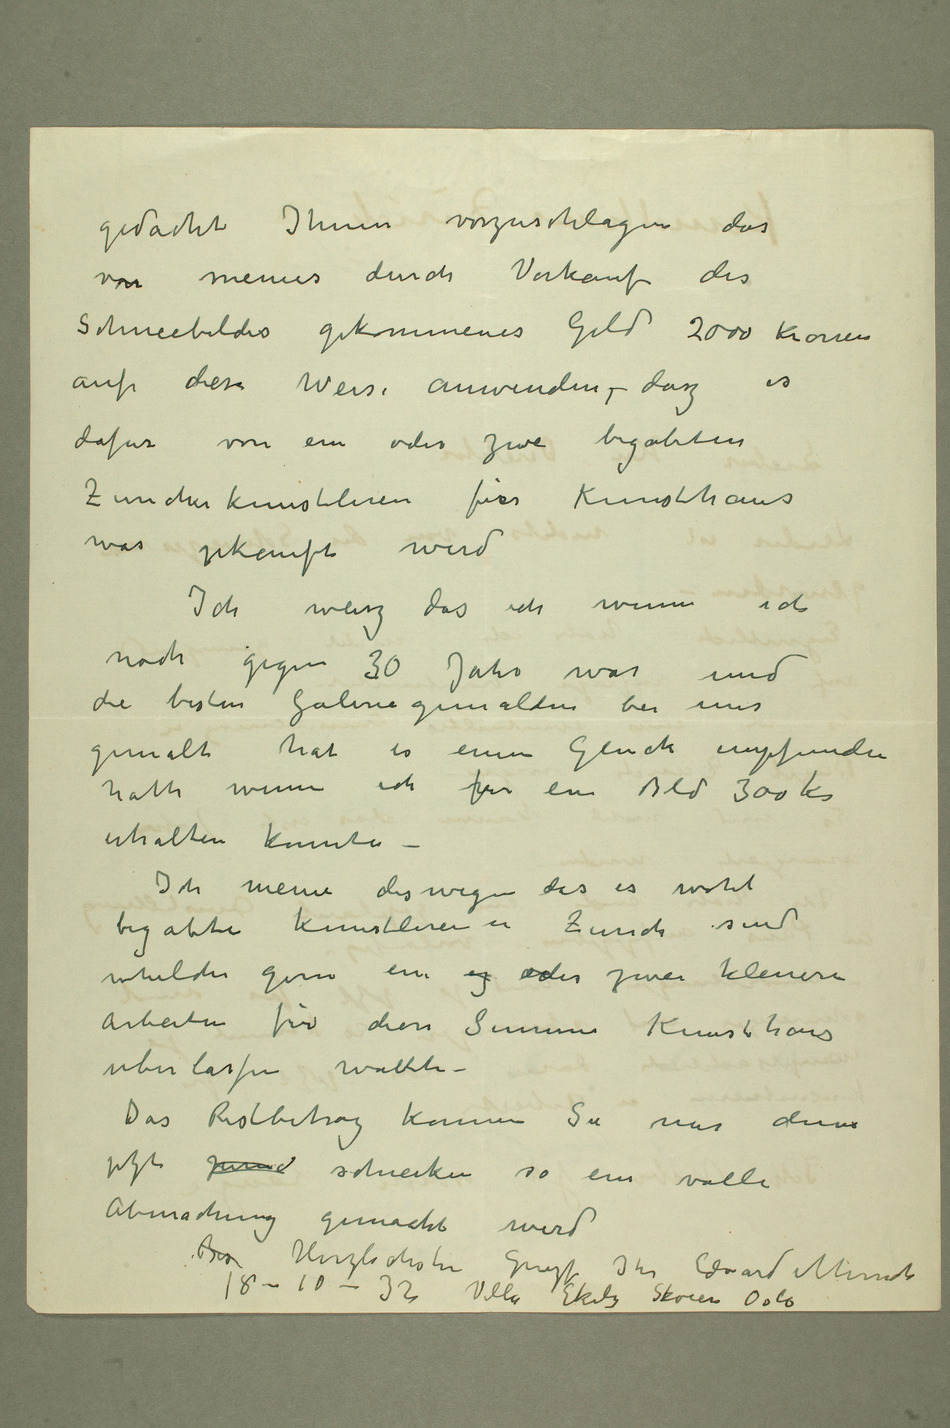 gedacht Ihnen vorzuschlagen das
von meines durch Verkauf des
Schneebildes gekommenes Geld 2000 Kronen
auf diese Weise anwenden, – dasz es
dafur von ein oder zwei begabten
Zuricherkunstleren fürs Kunsthaus
was gekauft werd
Ich weisz das ich wenn ich
noch gegen 30 Jahr war und
die besten Galeriegemalden bei uns
gemalt hat es einen Gluck empfunden
hatte wenn ich fur ein Bild 300 kr
erhalten konnte –
Ich meine deswegen das es wohl
begabte Kunstleren in Zurich sind
whelche gern ein oder zwei kleinere
Arbeiten für diese Summe Kunsthaus
uberlassen wollte –
Das Restbetrag konnen Sie mir denn
jetzt schicken so ein volle
Abmachung gemacht werd
Herzlichsten Grusz Ihr Edvard Munch
18 – 10 – 32 Villa Ekely Skøien Oslo